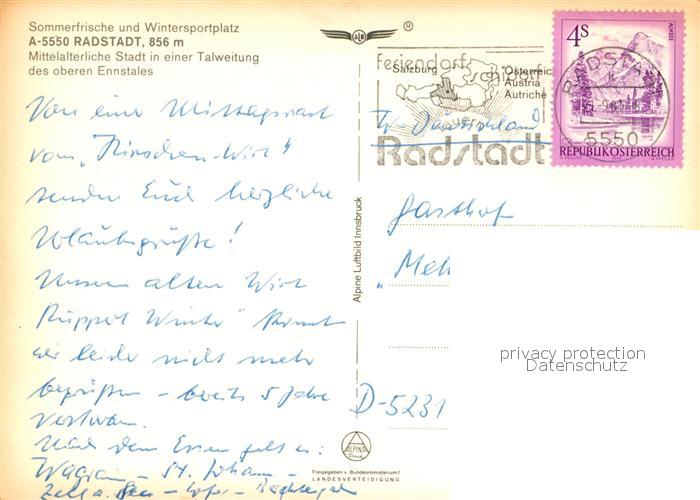 Sommerfrische und Wintersportplatz
A-5550 RADSTADT, 856 m
Mittelalterliche Stadt in einer Talweitung
des oberen Ennstales
Von einer Mittagsrast
vom „Hirschen-Wirt"
senden Euch herzliche
Urlaubsgrüße!
Unseren alten Wirt
Ruppert Winter" konnt
wir leider nicht mehr
begrüßen - bereits 5 Jahre
verstorben.
Nach dem Essen geht es:
Wagrain - St. Johann -
Zell a. See - Lofer -
®
Feriendorf
Salzburg
Österreich
Austria
Autriche
Radstadt
RADSTA
5550
4S
ALMSEE
REPUBLIK ÖSTERREICH
Alpine Luftbild Innsbruck
Gasthof
„Meh
D-5231
privacy protection
Datenschutz
ALPINE
Freigegeben v. Bundesministerium f.
LANDESVERTEIDIGUNG